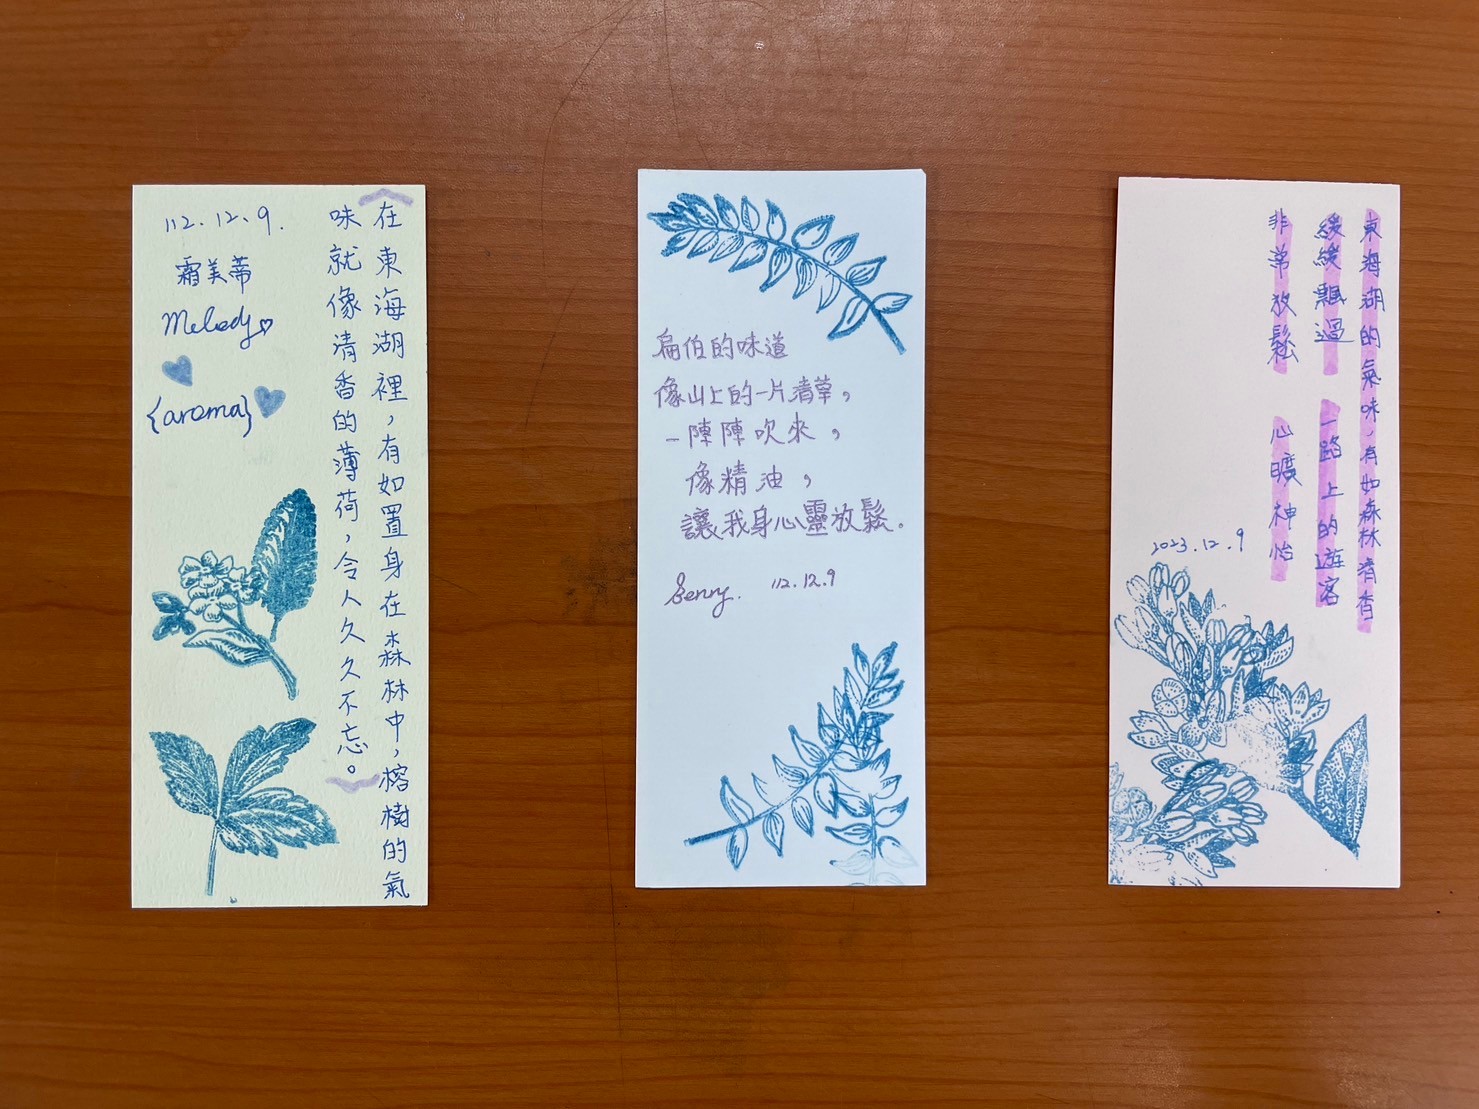 在東海湖裡,有如置身在森林中,榕樹的氣
味就像清香的薄荷,令人久久不忘。
112.12.9.
霜美蒂
Melody
{aroma}
扁伯的味道
像山上的一片清草,
一陣陣吹來,
像精油,
讓我身心靈放鬆。
Benny. 112.12.9
東海湖的氣味,有如森林清香
緩緩飄過 一路上的遊客
非常放鬆 心曠神怡
2023.12.9